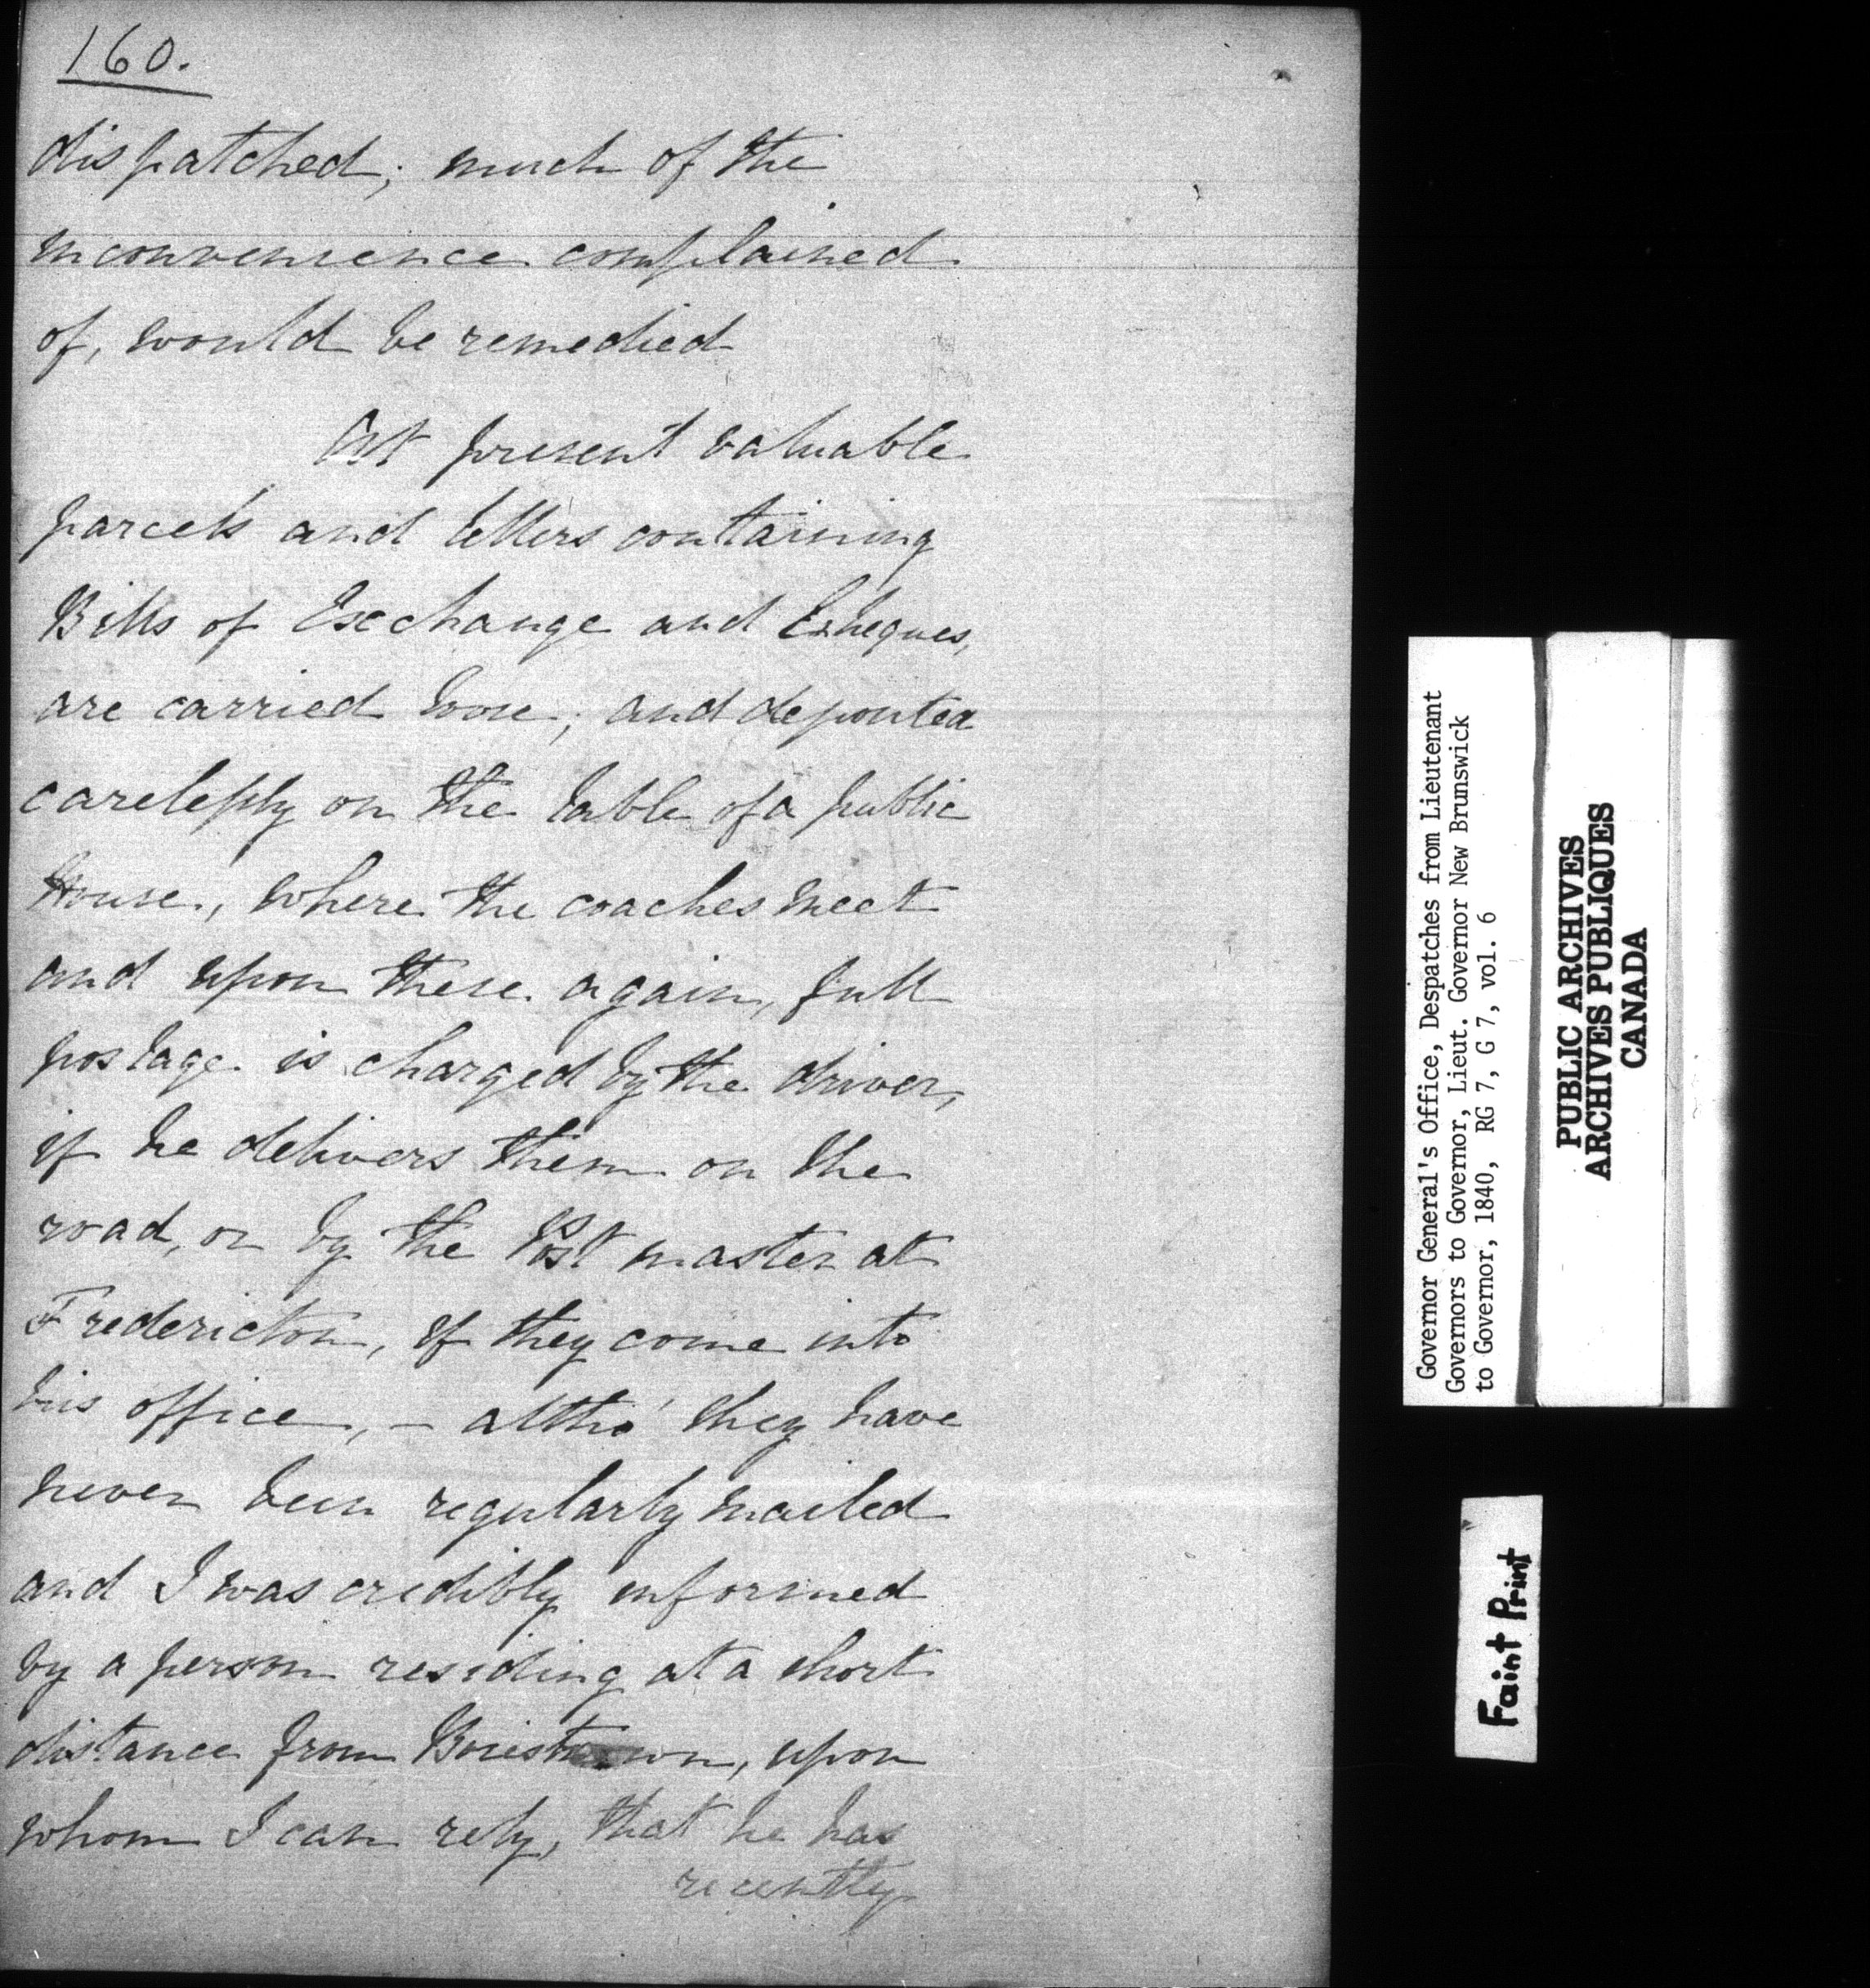 160.
dispatched; much of the
inconvenience complained
of, would be remedied
At present valuable
parcels and letters containing
Bills of Exchange and Cheques,
are carried loose; and deposited
carelessly on the table of a public
House, where the coaches meet
and upon these again, full
postage is charged by the driver,
if he delivers them on the
road, or by the Post master at
Fredericton, if they come into
his office, – altho' they have
never been regularly mailed
and I was credibly informed
by a person residing at a short
distance from Boiestown, upon
whom I can rely, that he has
recently
Governor General's Office, Despatches from Lieutenant
Governors to Governor, Lieut. Governor New Brunswick
to Governor, 1840, RG 7, G 7, vol. 6
PUBLIC ARCHIVES
ARCHIVES PUBLIQUES
CANADA
Faint Print